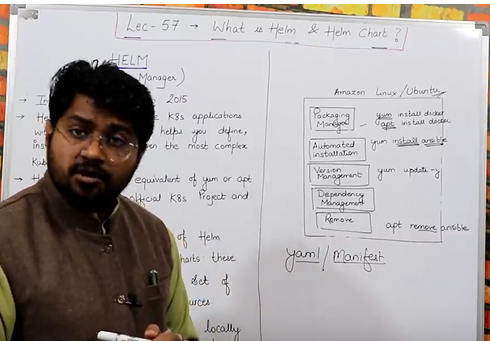 Lec-57 → What is Helm & Helm Chart?
HELM
Manager)
→ In 2015
→ He K8s applications
helps you define,
the most complex
Kub
→ H equivalent of yum or apt
official K8s Project and
of Helm
charts these
Set of
locally
Amazon Linux/Ubuntu
Packaging
Manager
yum install docker
apt install docker
Automated
installation
yum install ansible
Version
Management
yum update -y
Dependency
Management
Remove
apt remove ansible
yaml/Manifest